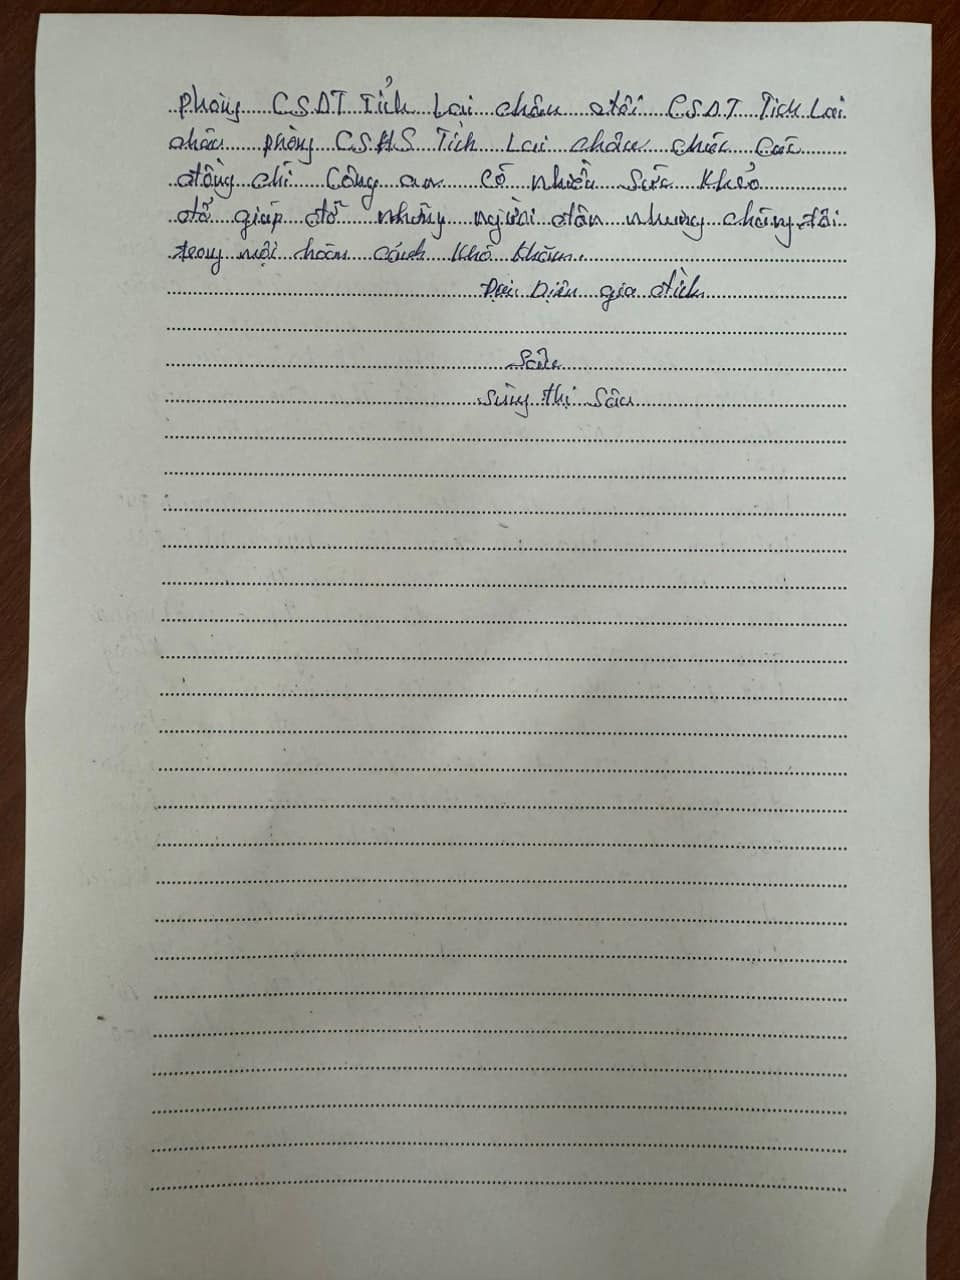 phòng C.S.DT Tỉnh Lai châu đội C.S.D.T Tỉnh Lai
châu phòng C.S.H.S Tỉnh Lai châu chúc Các
đồng chí Công an Có nhiều Sức Khỏe
để giúp đỡ những người dân nhưng chúng tôi
trong mội hoàn cảnh Khó Khăn.
Đại Diện gia đình
Sâu
Sùng thị Sâu